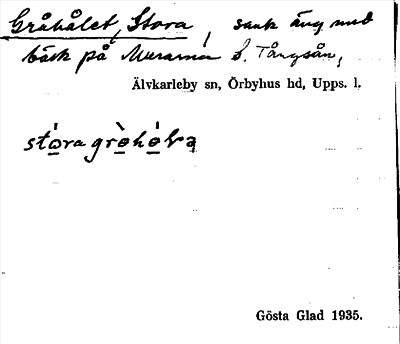 Gråhålet, Stora, sank äng med
bäck på Murarna ö. Tångsån,
Älvkarleby sn, Örbyhus hd, Upps. l.
sto̲ra gro̲ho̲ḷə
Gösta Glad 1935.